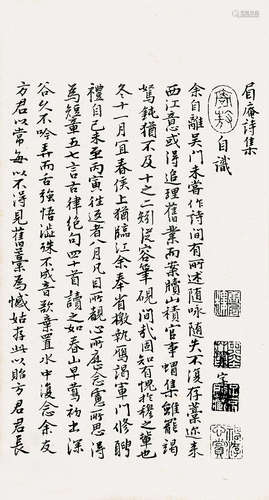 眉庵詩集
自識
余自離吳門未嘗作詩間有所述隨咏隨失不復存藁近來
西江意或得追理舊業而案牘山積官事蝟集雖罷謁
駑鈍猶不及十之二矧從容筆硯間哉固知有愧於穆之輩也
冬十一月且春侯上猶臨江余奉省檄執謁軍門修聘
禮自己未至丙寅往返者八月凡目所觀心所歷念慮所思得
為短章五七言古律絕句四十首讀之如春山早鶯初出深
谷久不吟弄而舌強語澁殊不成音歌棄置水中復念余友
方君以常每以不得見舊藁為憾姑存與以貽方君君長